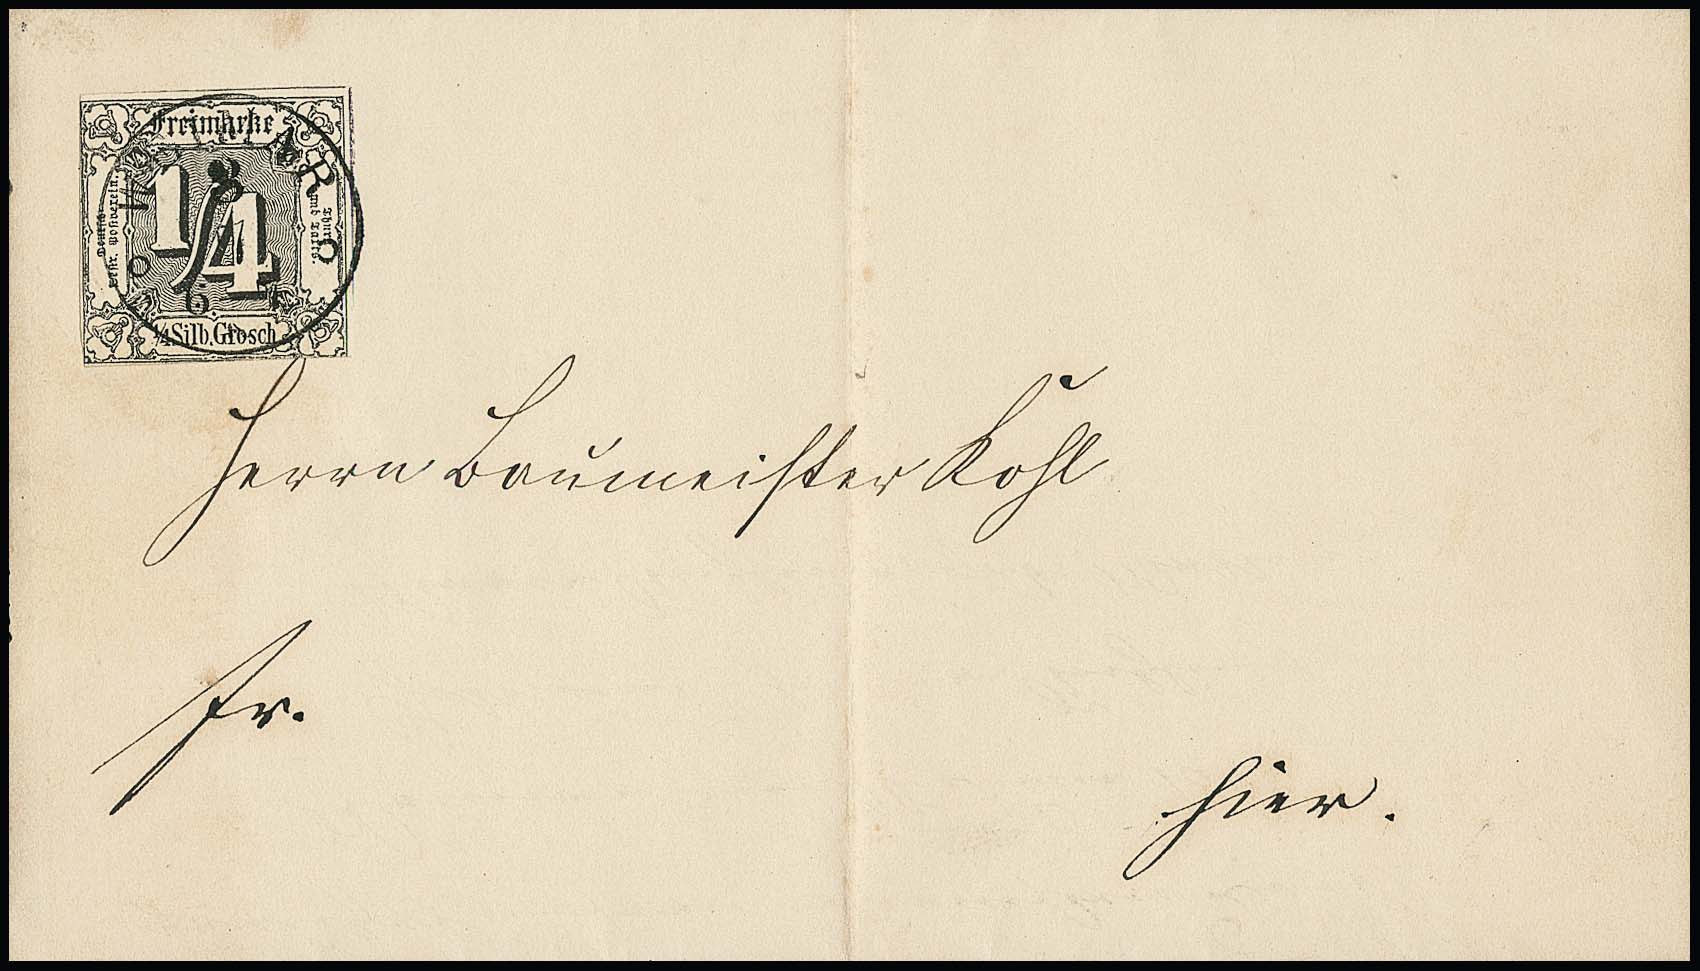 Freimarke
Deutsch-
Oestr. Postverein.
1/4
Thurn
und Taxis.
1/4 Silb. Grosch.
WEIMAR
8
7
6
Herrn Baumeister Kohl
fr.
hier.